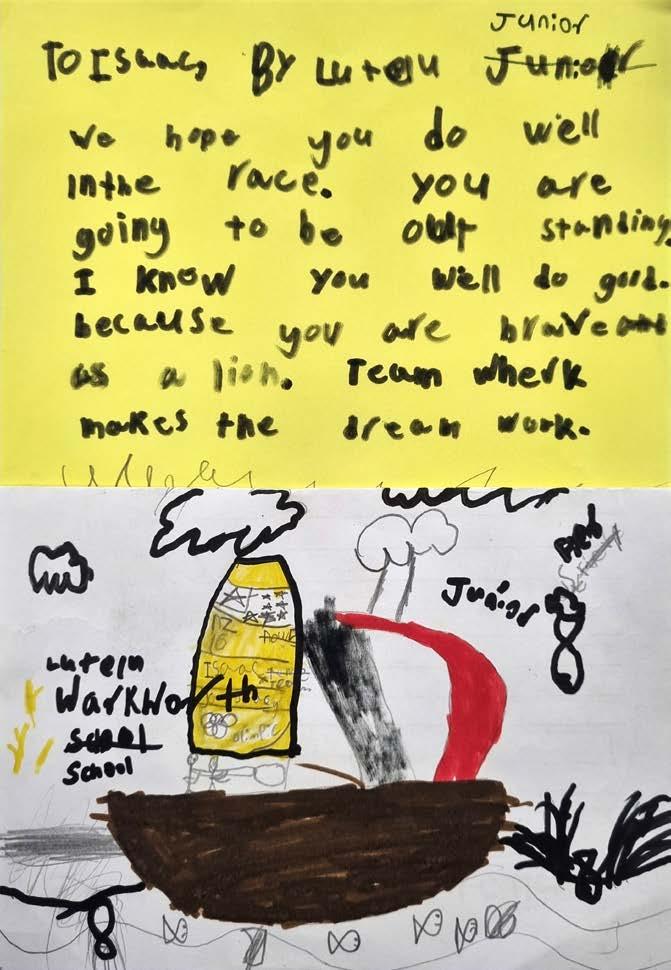 Junior
To Isaac, By Lutelu
We hope you do well
in the race. You are
going to be out standing.
I know you well do good.
because you are brave
as a lion. Team wherk
makes the dream work.
Junior
NZ
16
Hawk
Isaac
Lutelu
Warkworth
School
olimpic